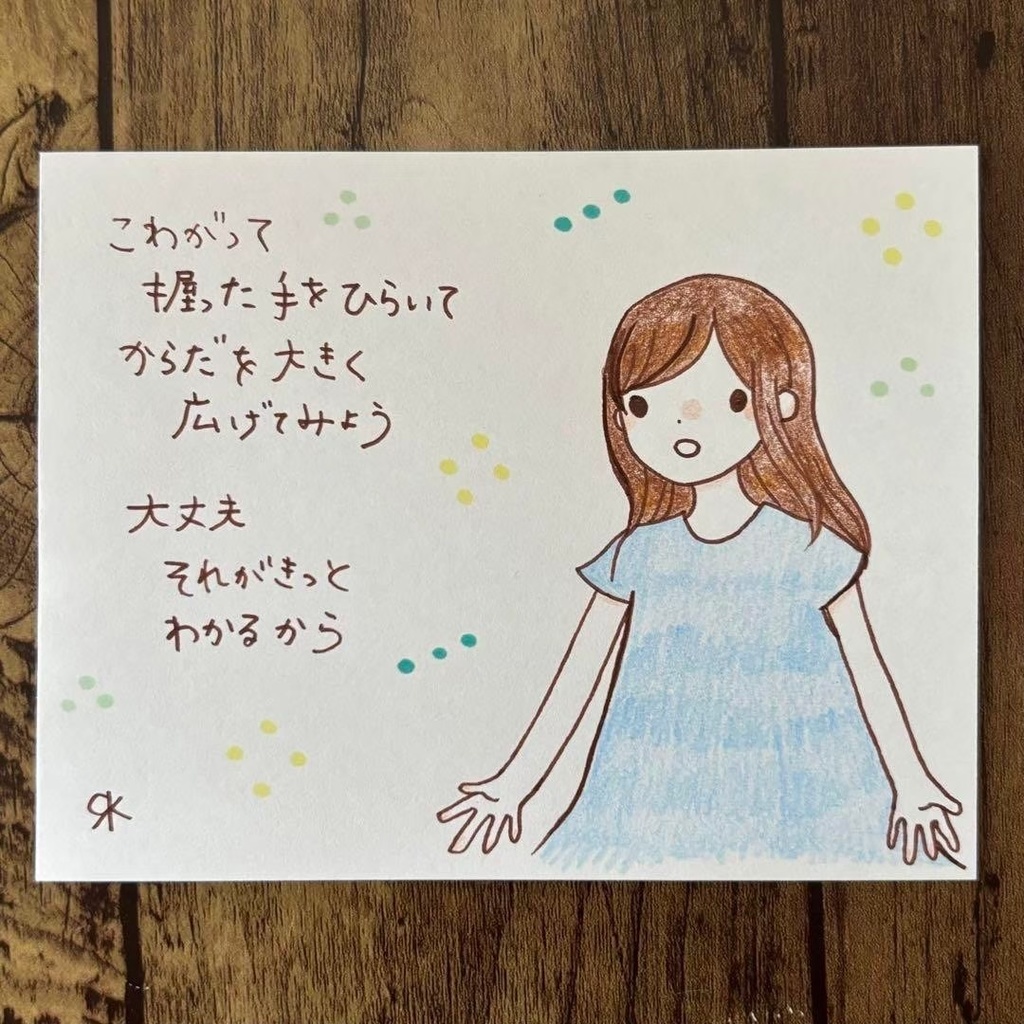 こわがって
握った手をひらいて
からだを大きく
広げてみよう
大丈夫
それがきっと
わかるから